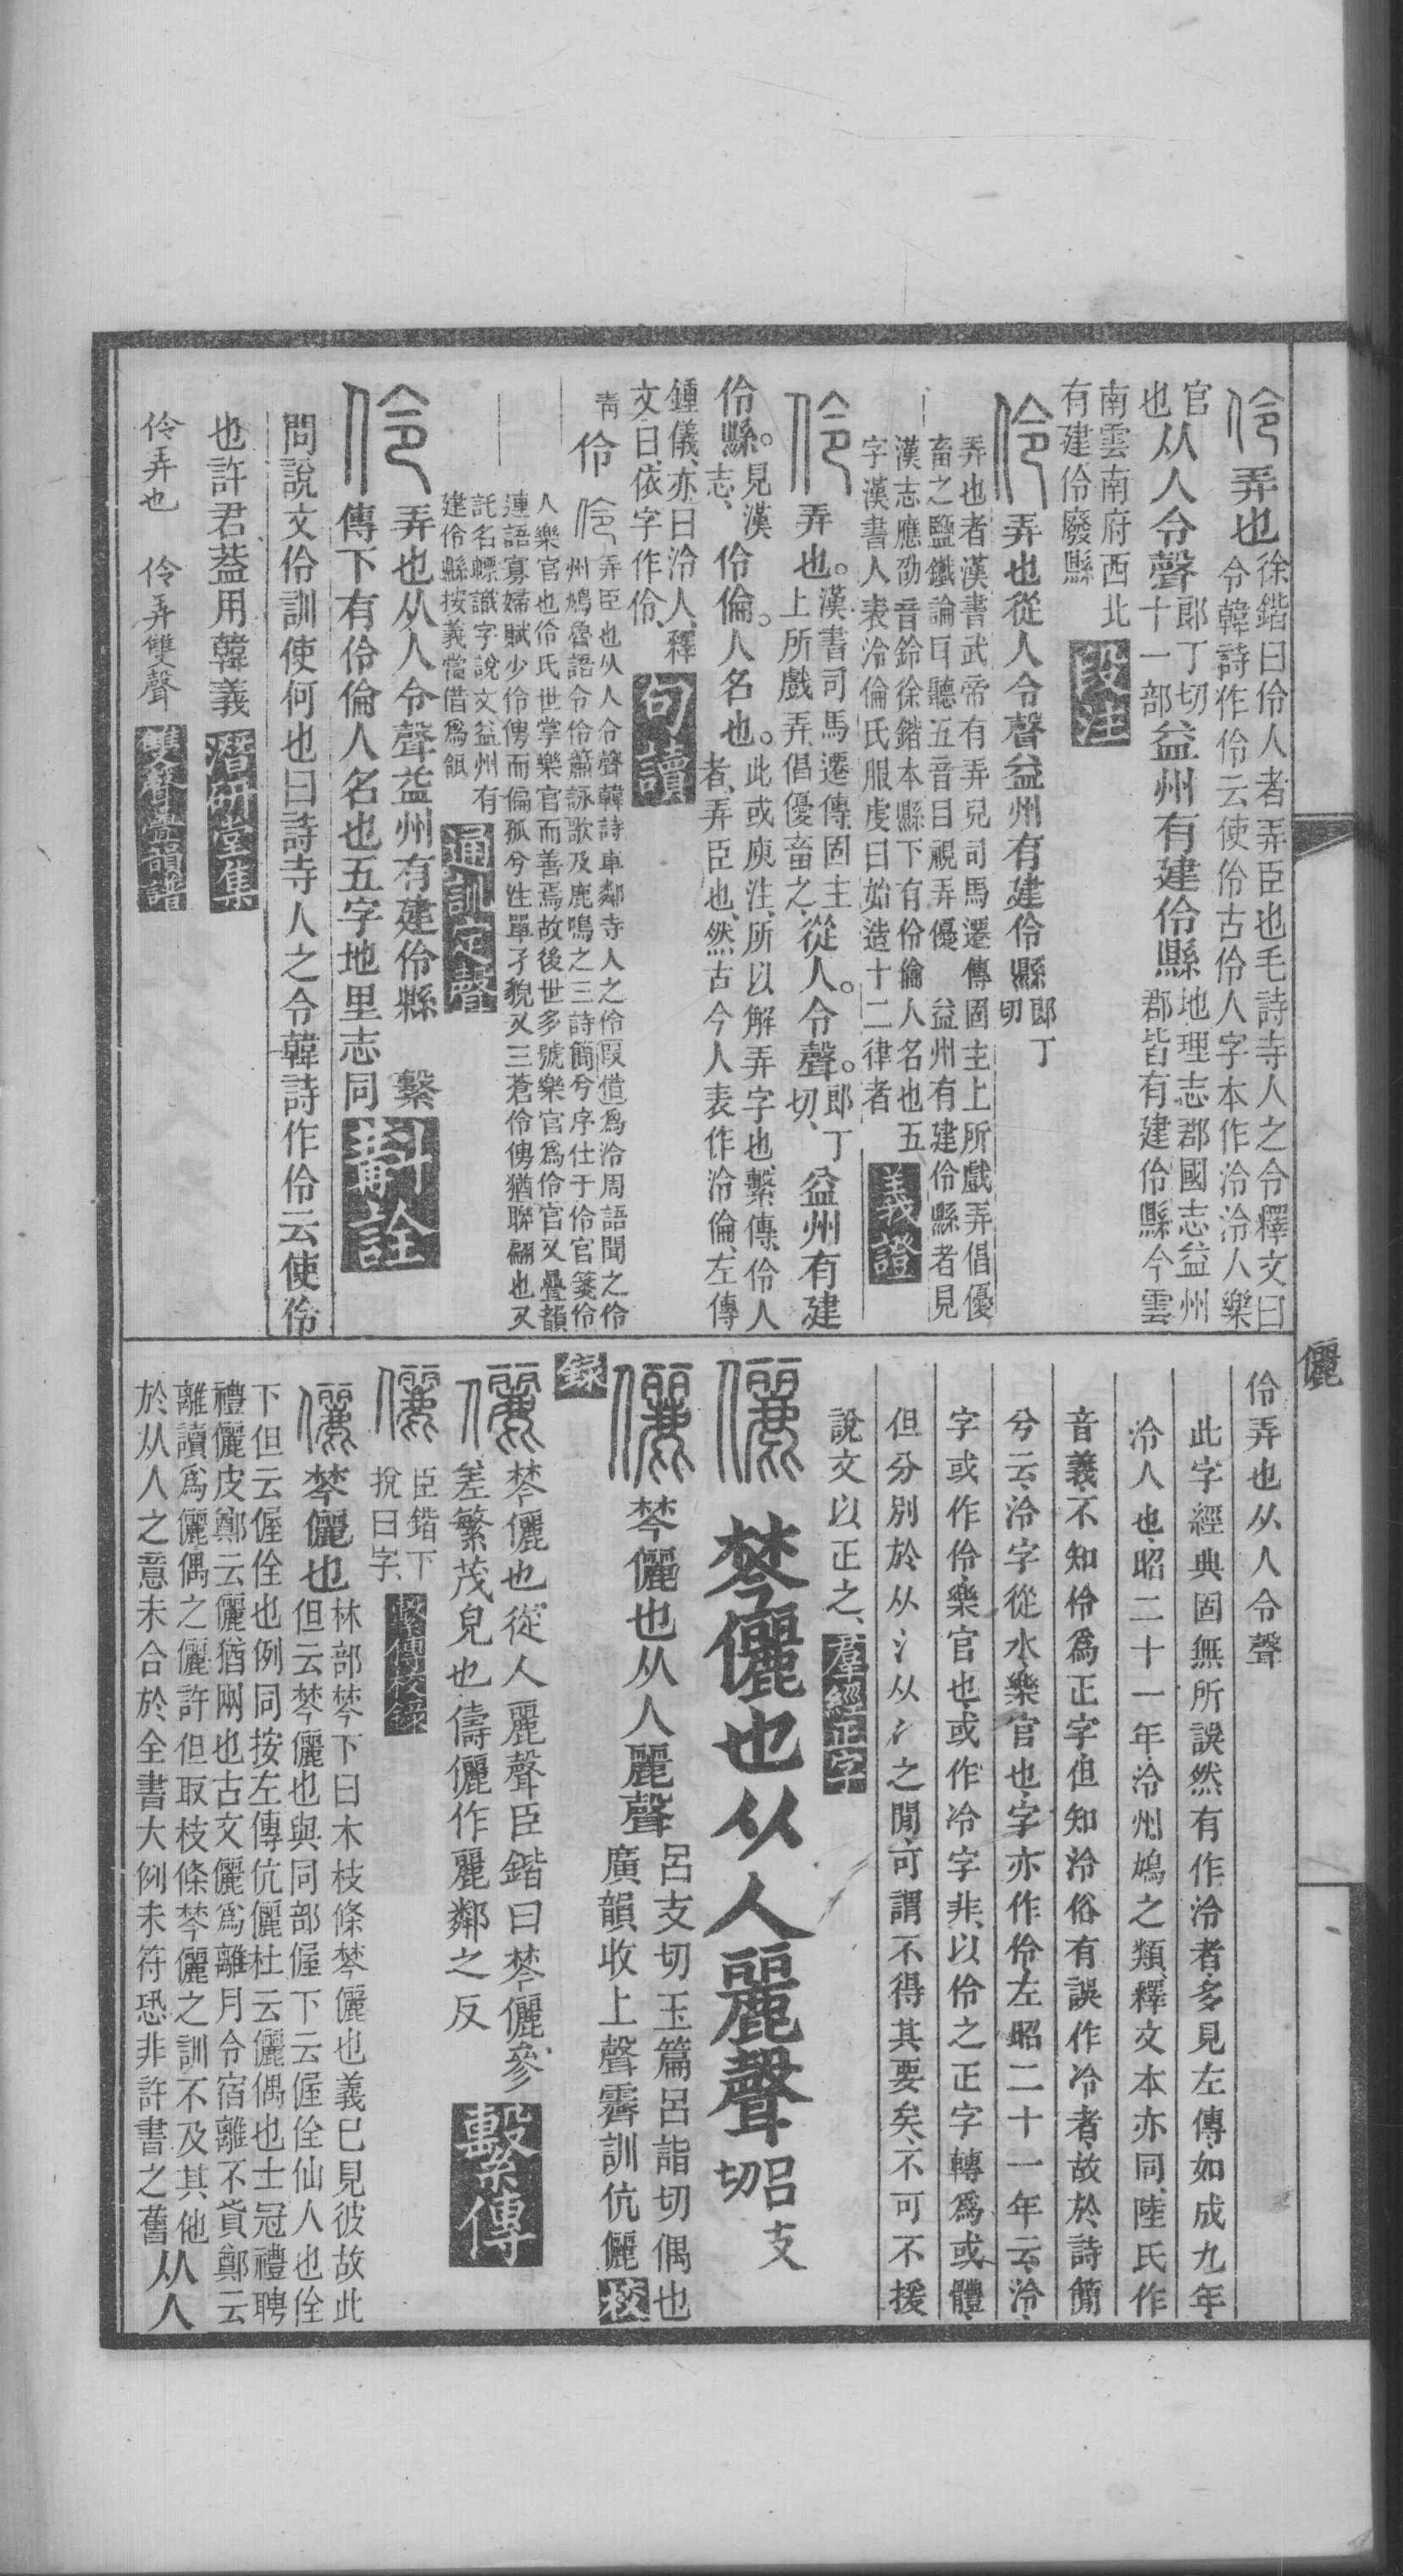 儷
伶弄也徐鍇曰伶人者弄臣也毛詩寺人之令釋文曰
令韓詩作伶云使伶古伶人字本作泠泠人樂
官也从人令聲郎丁切十一部益州有建伶縣地理志郡國志益州
郡皆有建伶縣今雲
南雲南府西北
有建伶廢縣
段注
伶弄也從人令聲益州有建伶縣郎丁切
弄也者漢書武帝有弄兒司馬遷傳固主上所戲弄倡優
畜之鹽鐵論曰聽五音目視弄優 益州有建伶縣者見
漢志應劭音鈴徐鍇本縣下有伶倫人名也五
字漢書人表泠倫氏服虔曰始造十二律者
義證
伶弄也。漢書司馬遷傳固主
上所戲弄、倡優畜之、從人。令聲。郎丁切、益州有建
伶縣。見漢志、伶倫。人名也。此或庾注、所以解弄字也、繫傳、伶人
者、弄臣也、然古今人表作泠倫、左傳
鍾儀、亦曰泠人、釋
文曰、依字作伶、
句讀
靑
伶弄臣也从人令聲韓詩車鄰寺人之伶叚借爲泠周語聞之伶
州鳩魯語令伶簫詠歌及鹿鳴之三詩簡兮序仕于伶官箋伶
人樂官也伶氏世掌樂官而善焉故後世多號樂官爲伶官又疊韻
連語寡婦賦少伶俜而偏孤兮注單孑貌又三蒼伶俜猶聯翩也又
託名幖識字說文益州有
建伶縣按義當借爲
通訓定聲
伶弄也从人令聲益州有建伶縣 繫
傳下有伶倫人名也五字地里志同
斠詮
問說文伶訓使何也曰詩寺人之令韓詩作伶云使伶
也許君葢用韓義
潛研堂集
伶弄也 伶弄雙聲
雙聲疊韻譜
伶弄也从人令聲
此字經典固無所誤然有作泠者、多見左傳、如成九年、
泠人也、昭二十一年、泠州鳩之類、釋文本亦同、陸氏作
音義、不知伶爲正字、但知泠俗有誤作冷者、故於詩簡
兮云、泠字從水、樂官也、字亦作伶、左昭二十一年云、泠、
字或作伶、樂官也、或作冷字非、以伶之正字轉爲或體、
但分別於从氵从冫之閒、可謂不得其要矣、不可不援
說文以正之、
羣經正字
儷棽儷也从人麗聲呂支切
儷棽儷也从人麗聲呂支切玉篇呂詣切偶也
廣韻收上聲霽訓伉儷
校錄
儷棽儷也、從人麗聲臣鍇曰棽儷、參
差繁茂皃也、儔儷作麗鄰之反
繫傳
儷臣鍇下
挩曰字、
繫傳校錄
儷棽儷也林部棽下曰木枝條棽儷也義巳見彼故此
但云棽儷也與同部偓下云偓佺仙人也佺
下但云偓佺也例同按左傳伉儷杜云儷偶也士冠禮聘
禮儷皮鄭云儷猶兩也古文儷爲離月令宿離不貣鄭云
離讀爲儷偶之儷許但取枝條棽儷之訓不及其他
於从人之意未合於全書大例未符恐非許書之舊从人